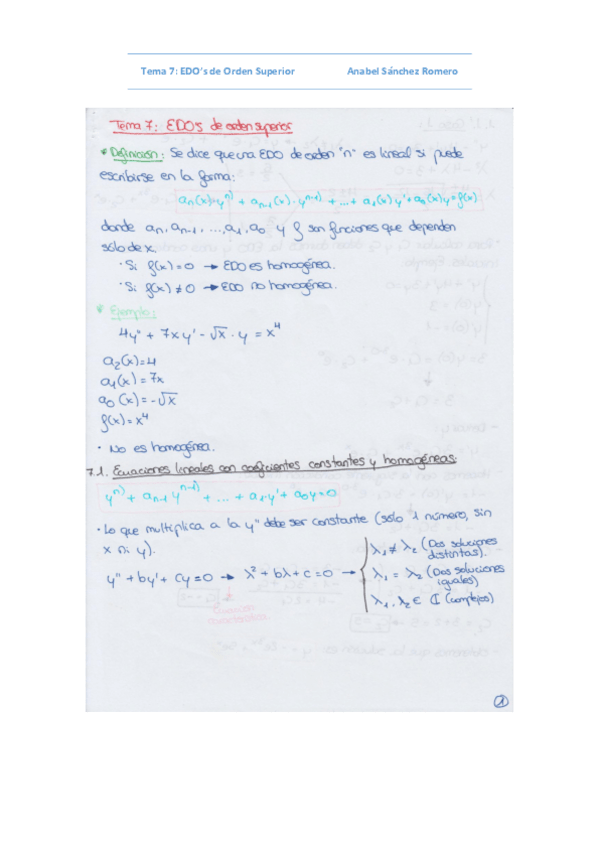 Tema 7: EDO's de Orden Superior Anabel Sánchez Romero
Tema 7: EDOs de orden superior
* Definición: Se dice que una EDO de orden "n" es lineal si puede
escribirse en la forma:
aₙ(x)·yⁿ⁾ + aₙ₋₁(x)·yⁿ⁻¹⁾ + ... + a₁(x)y' + a₀(x)y = f(x)
donde aₙ, aₙ₋₁, ..., a₁, a₀ y f son funciones que dependen
sólo de x.
· Si f(x) = 0 → EDO es homogénea.
· Si f(x) ≠ 0 → EDO no homogénea.
* Ejemplo:
4y'' + 7xy' - √x · y = x⁴
a₂(x) = 4
a₁(x) = 7x
a₀(x) = -√x
f(x) = x⁴
· No es homogénea.
7.1. Ecuaciones lineales con coeficientes constantes y homogéneas:
yⁿ⁾ + aₙ₋₁yⁿ⁻¹⁾ + ... + a₁y' + a₀y = 0
· Lo que multiplica a la y'' debe ser constante (sólo 1 número, sin
x ni y).
y'' + by' + cy = 0 → λ² + bλ + c = 0 →
λ₁ ≠ λ₂ (Dos soluciones
distintas).
λ₁ = λ₂ (Dos soluciones
iguales)
λ₁, λ₂ ∈ ℂ (complejos)
Ecuación
característica.
1